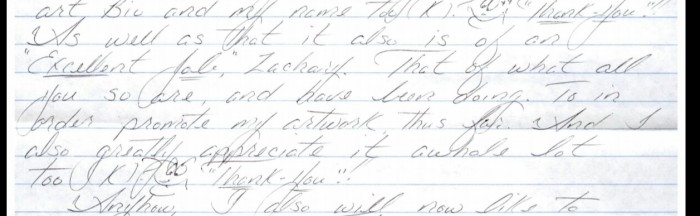 art Bio and my name too (K). "Thank-you"!!
As well as that it also is of an
"Excellent Job," Zachary. That of what all
you so are, and have been doing. To in
order promote my artwork, thus far. And I
also greatly appreciate it awhole lot
too (K). "Thank-you"!!
Anyhow, I also will now like to